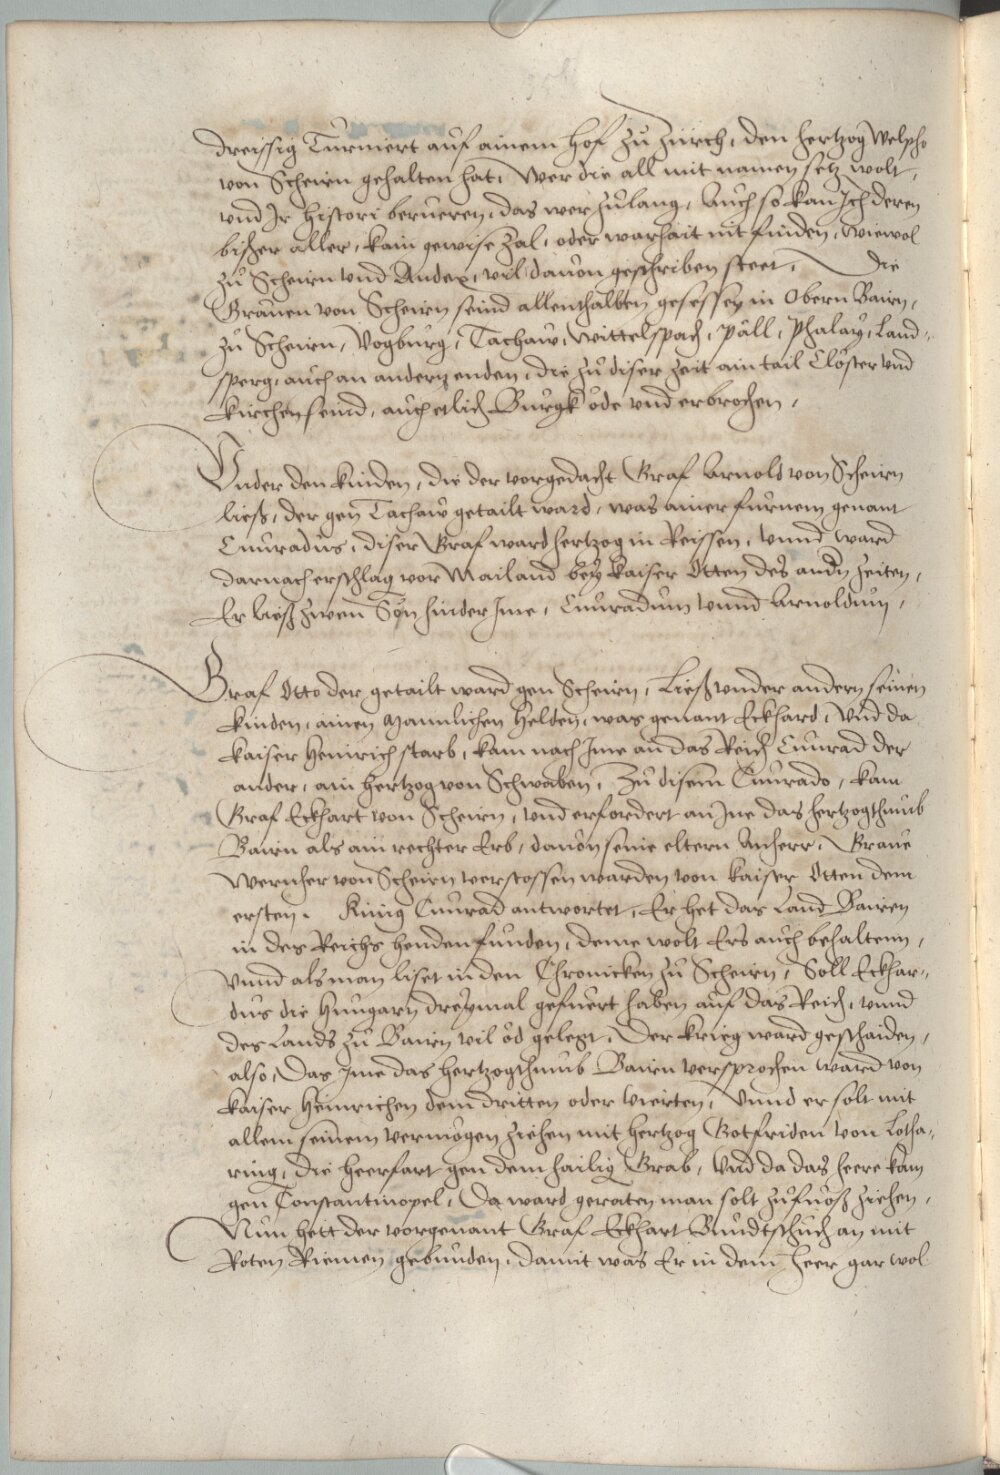 dreissig Turniert auf ainem hof zu Zürch, den hertzog Welpho
von Scheirn gehalten hat, Wer die all mit namen setz wolt,
vnd Jr histori berueren, das wer zulang, Auch so kan Jch deren
bißher aller, kain gewise zal, oder warhait nit finden, wiewol
zu Scheirn vnd Andex, vil dauon geschriben steet, Die
Grauen von Scheirn seind allenthalben gesessen in Obern Bairn,
zu Scheirn, Vogburg, Tachaw, Wittelspach, Päll, Phalay, Land-
sperg, auch an andern enden, die zu diser zeit ain tail Clöster vnd
kirchen seind, auch etlich Burgk öde vnd erbrochen,
Vnder den kinden, die der vorgedacht Graf Arnold von Scheirn
ließ, der gen Tachaw getailt ward, was ainer furnem genant
Cunradus, diser Graf ward hertzog in Reissen, vnnd ward
darnach erschlag vor Mailand bey kaiser Otten des andn zeiten,
Er ließ zwen Sön hinder Jme, Cunradum vnnd Arnoldum,
Graf Otto der getailt ward gen Scheirn, Ließ vnder andern seinen
kinden, ainen Mannlichen helden, was genant Eckhard, Vnd da
kaiser Heinrich starb, kam nach Jme an das Reich Cunrad der
ander, ain hertzog von Schwaben, Zu disem Cunrado, kam
Graf Eckhart von Scheirn, vnd erfordert an Jne das hertzogthumb
Bairn als ain rechter Erb, dauon seine eltern Anherr, Graue
Wernher von Scheirn verstossen warden von kaiser Otten dem
ersten, Künig Cunrad antwortet, Er het das Land Bairen
in des Reichs henden funden, deme wolt Ers auch behaltenn,
Vnnd als man liset in den Chronicken zu Scheirn, Soll Eckhar-
dus die Hungarn dreymal gefuert haben auf das Reich, vnnd
des Lands zu Bairn vil öd gelegt, Der krieg ward geschaiden,
also, Das Jme das hertzogthumb Bairn versprochen ward von
kaiser Heinrichen dem dritten oder vierten, Vnnd er solt mit
allem seinem vermögen ziehen mit hertzog Gotfriden von Lotha-
ring, die heerfart gen dem hailig Grab, Vnd da das heere kam
gen Constantinopel, Da ward geraten man solt zufuoß ziehen,
Nun hett der vorgenant Graf Ekhart Bundtschuch an mit
Roten Riemen gebunden, damit was Er in dem heer gar wol